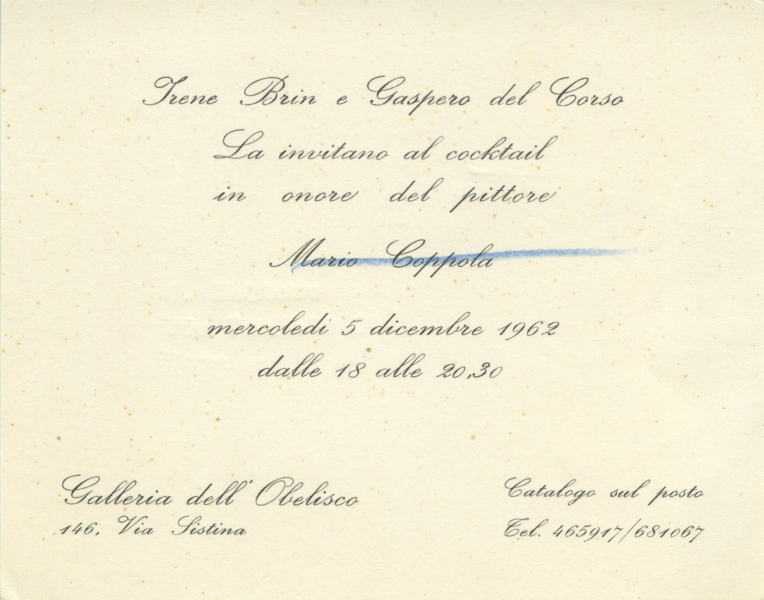 Irene Brin e Gaspero del Corso
La invitano al cocktail
in onore del pittore
Mario Coppola
mercoledi 5 dicembre 1962
dalle 18 alle 20,30
Galleria dell' Obelisco
146, Via Sistina
Catalogo sul posto
Tel. 465917/681067